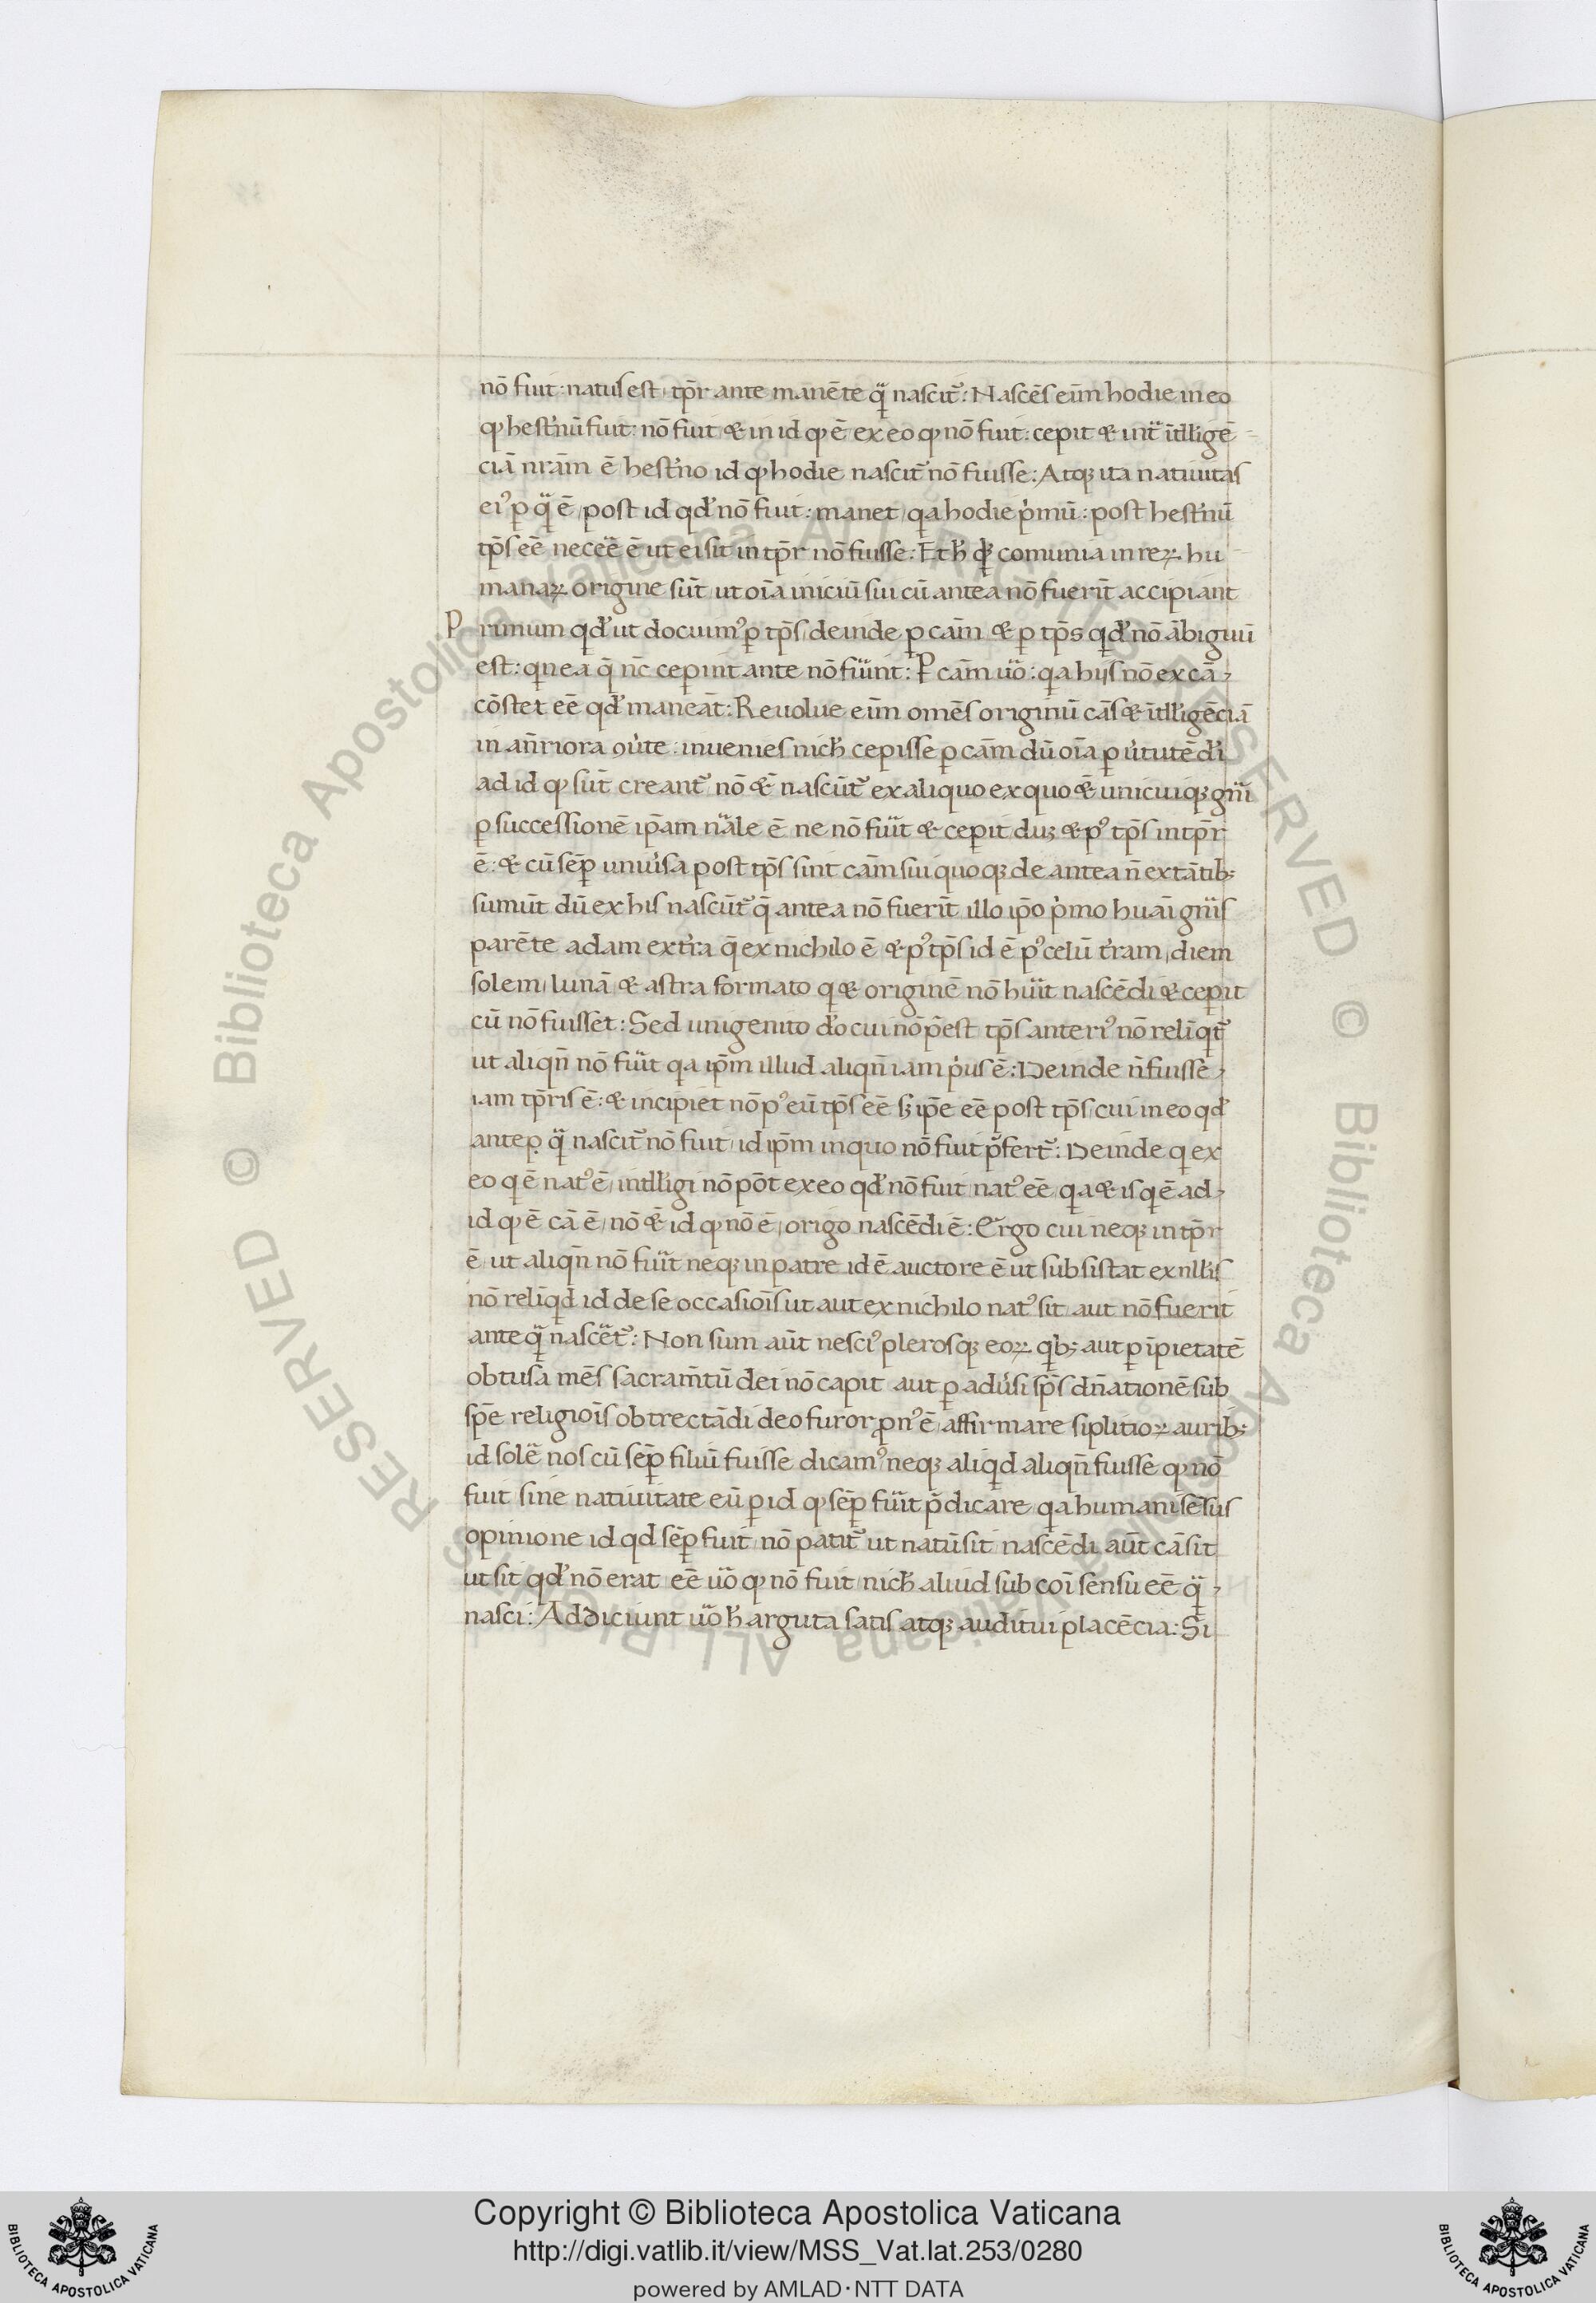 nō fuit: natus est tp̄r ante manēte q̈ nascit᷑: Nascēs eīm hodie in eo
qͦ hest᷑nū fuit: nō fuit & in id qͦ ē ex eo qͦ nō fuit: cepit & int᷑ itllige᷑-
ciā nrām ē hest᷑no id qͦ hodie nascit᷑ nō fuisse: Atqꝫ ita natiuitas
eiꝰ ꝑ q̈ ē post id qd᷑ nō fuit: manet qa hodie pͥmū: post hest᷑nū
tp̄s eē necēe ē ut ei sit in tp̄r nō fuisse: Et h᷑ qͥꝫ comunia in reꝝ hu
manaꝝ origine sūt ut oīa iniciū sui cū antea nō fuerīt accipiant
Primum qd᷑ ut docuimꝰ ꝑ tp̄s deinde ꝑ cām & ꝑ tp̄s qd᷑ nō ābiguū
est: qn ea q̄ nc̄ ceperint ante nō fūint: P cām uͦo: qa hijs nō ex cā
cōstet eē qd᷑ maneāt: Reuolue eīm omēs originū cās & itlligēciā
in an̄riora ꝯuͥte: inuenies nich᷑ cepisse ꝑ cām dū oīa ꝑ uͥtutē d᷑i
ad id qͦ sūt creant᷑ nō & nascūt᷑ ex aliquo ex quo & unicuiqꝫ gn̄i
ꝑ successionē ip̄am nāle ē ne nō fūit & cepit duꝫ & pꝰ tp̄s in tp̄r
ē: & cū sēꝑ unuͥsa post tp̄s sint cām sui quoqꝫ de antea n̄ extātibꝫ
sumūt dū ex his nascūt᷑ q̄ antea nō fuerīt illo ip̄o pͥmo huāi gn̄is
parēte adam ex t᷑ra q̄ ex nichilo ē & pꝰ tp̄s id ē pꝰ celū t᷑ram diem
solem lunā & astra formato q & originē nō hūit nascēdi & cepit
cū nō fuisset: Sed unigenito d᷑o cui nō p̄est tp̄s anteriꝰ nō relīqt᷑
ut aliqn̄ nō fūit qa ip̄m illud aliqn̄ iam pͥus ē: Deinde n̄ fuisse
iam tp̄ris ē: & incipiet nō pꝰ eū tp̄s eē sꝫ ip̄e eē post tp̄s cui in eo qd᷑
anteꝑ q̈ nascit᷑ nō fuit id ip̄m in quo nō fuit p̄fert᷑: Deinde q ex
eo q ē natꝰ ē intlligi nō pōt ex eo qd᷑ nō fuit natꝰ eē qa & is q ē ad
id qͦ ē cā ē nō & id qͦ nō ē origo nascēdi ē: Ergo cui neqꝫ in tp̄r
ē ut aliqn̄ nō fūit neqꝫ in patre id ē auctore ē ut subsistat ex nllis
nō relīqd id de se occasiōis ut aut ex nichilo natꝰ sit aut nō fuerit
ante q̈ nascet᷑: Non sum aūt nesciꝰ plerosqꝫ eoꝝ qbꝫ aut ꝑ īpietatē
obtusa mēs sacram̄tū dei nō capit aut ꝑ aduͥsi sp̄s dn̄ationē sub
sp̄e religiōis obtrectādi deo furor pn̄ꝰ ē affirmare siplitioꝝ auribꝫ
id solē nos cū sēꝑ filiū fuisse dicamꝰ neqꝫ aliqd aliqn̄ fuisse qͦ nō
fuit sine natiuitate eū ꝑ id qͦ sēꝑ fūit p̄dicare qa humani sēsus
opinione id qd sēꝑ fuit nō patit᷑ ut natū sit nascēdi aūt cā sit
ut sit qd᷑ nō erat eē uͦo qͦ nō fuit nich᷑ aliud sub coī sensu eē q̈
nasci: Addiciunt uͦo h᷑ arguta satis atqꝫ auditui placēcia: Si
Copyright © Biblioteca Apostolica Vaticana
http://digi.vatlib.it/view/MSS_Vat.lat.253/0280
powered by AMLAD·NTT DATA